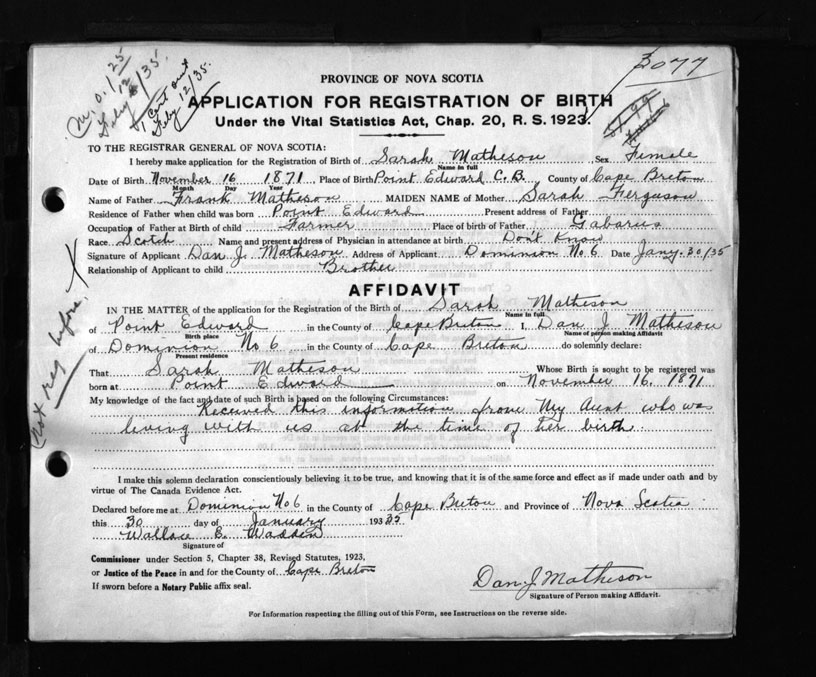 M.O. 1/25
July 12/35
1 Cert out
July 12/35.
3077
PROVINCE OF NOVA SCOTIA
APPLICATION FOR REGISTRATION OF BIRTH
Under the Vital Statistics Act, Chap. 20, R. S. 1923.
TO THE REGISTRAR GENERAL OF NOVA SCOTIA:
I hereby make application for the Registration of Birth of Sarah Matheson Sex Female
Name in full
Date of Birth November 16 1871 Place of Birth Point Edward C.B. County of Cape Breton
Month Day Year
Name of Father Frank Matheson MAIDEN NAME of Mother Sarah Ferguson
Residence of Father when child was born Point Edward Present address of Father
Occupation of Father at Birth of child Farmer Place of birth of Father Gabarus
Race Scotch Name and present address of Physician in attendance at birth Don't Know
Signature of Applicant Dan J. Matheson Address of Applicant Dominion No 6 Date Jany. 30/35
Relationship of Applicant to child Brother
AFFIDAVIT
IN THE MATTER of the application for the Registration of the Birth of Sarah Matheson
Name in full
of Point Edward in the County of Cape Breton I, Dan J. Matheson
Birth place Name of person making Affidavit
of Dominion No 6 in the County of Cape Breton do solemnly declare:
Present residence
That Sarah Matheson Whose Birth is sought to be registered was
born at Point Edward on November 16, 1871
My knowledge of the fact and date of such Birth is based on the following Circumstances:
Received this information from My Aunt who was
living with us at the time of her birth.
I make this solemn declaration conscientiously believing it to be true, and knowing that it is of the same force and effect as if made under oath and by
virtue of The Canada Evidence Act.
Declared before me at Dominion No 6 in the County of Cape Breton and Province of Nova Scotia
this 30 day of January 193 35
Wallace E. Wadden
Signature of
Commissioner under Section 5, Chapter 38, Revised Statutes, 1923,
or Justice of the Peace in and for the County of Cape Breton
If sworn before a Notary Public affix seal.
Dan J. Matheson
Signature of Person making Affidavit.
For Information respecting the filling out of this Form, see Instructions on the reverse side.
Not reg before. X